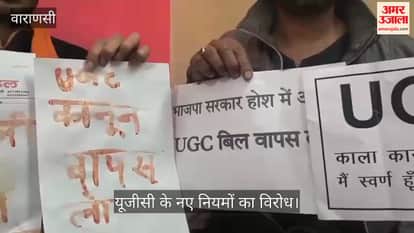 वाराणसी
अमर उजाला
amarujala.com
UGC
कानून
वापस
लो
भाजपा सरकार होश में
UGC बिल वापस
UG
काला
मैं स्वर्ण हूँ
यूजीसी के नए नियमों का विरोध।